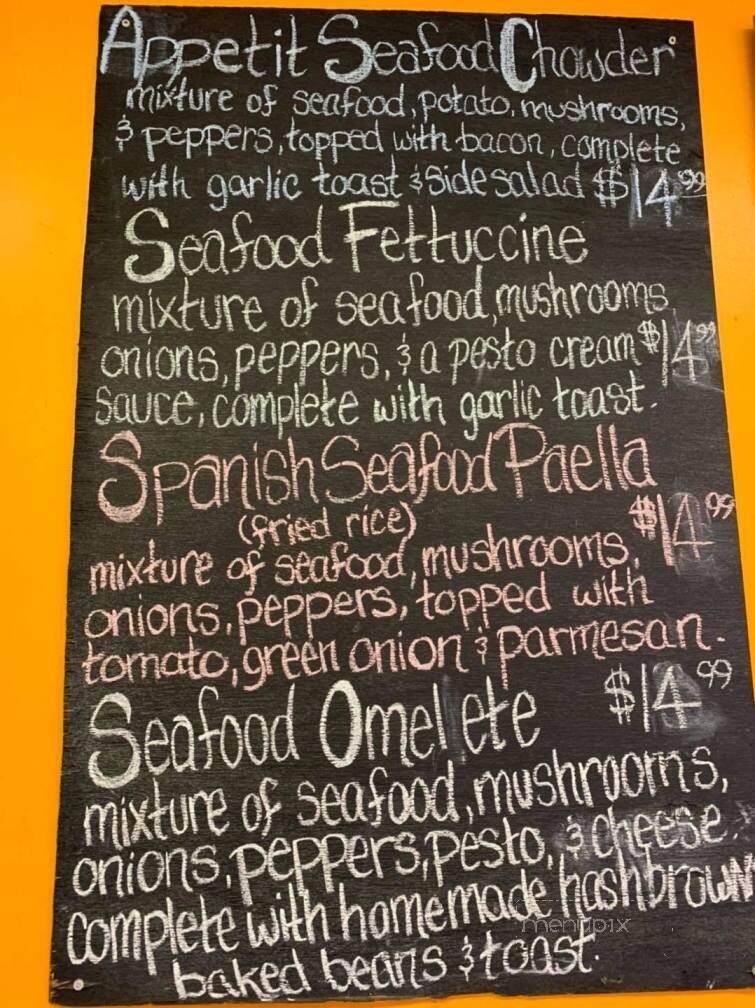 Appetit Seafood Chowder
mixture of seafood, potato, mushrooms,
& peppers, topped with bacon, complete
with garlic toast & side salad $14.99
Seafood Fettuccine
mixture of seafood, mushrooms
onions, peppers, & a pesto cream $14.99
sauce, complete with garlic toast.
Spanish Seafood Paella
(fried rice) $14.99
mixture of seafood, mushrooms,
onions, peppers, topped with
tomato, green onion & parmesan.
Seafood Omelete $14.99
mixture of seafood, mushrooms,
onions, peppers, pesto, & cheese.
complete with homemade hashbrown
baked beans & toast.
menupix